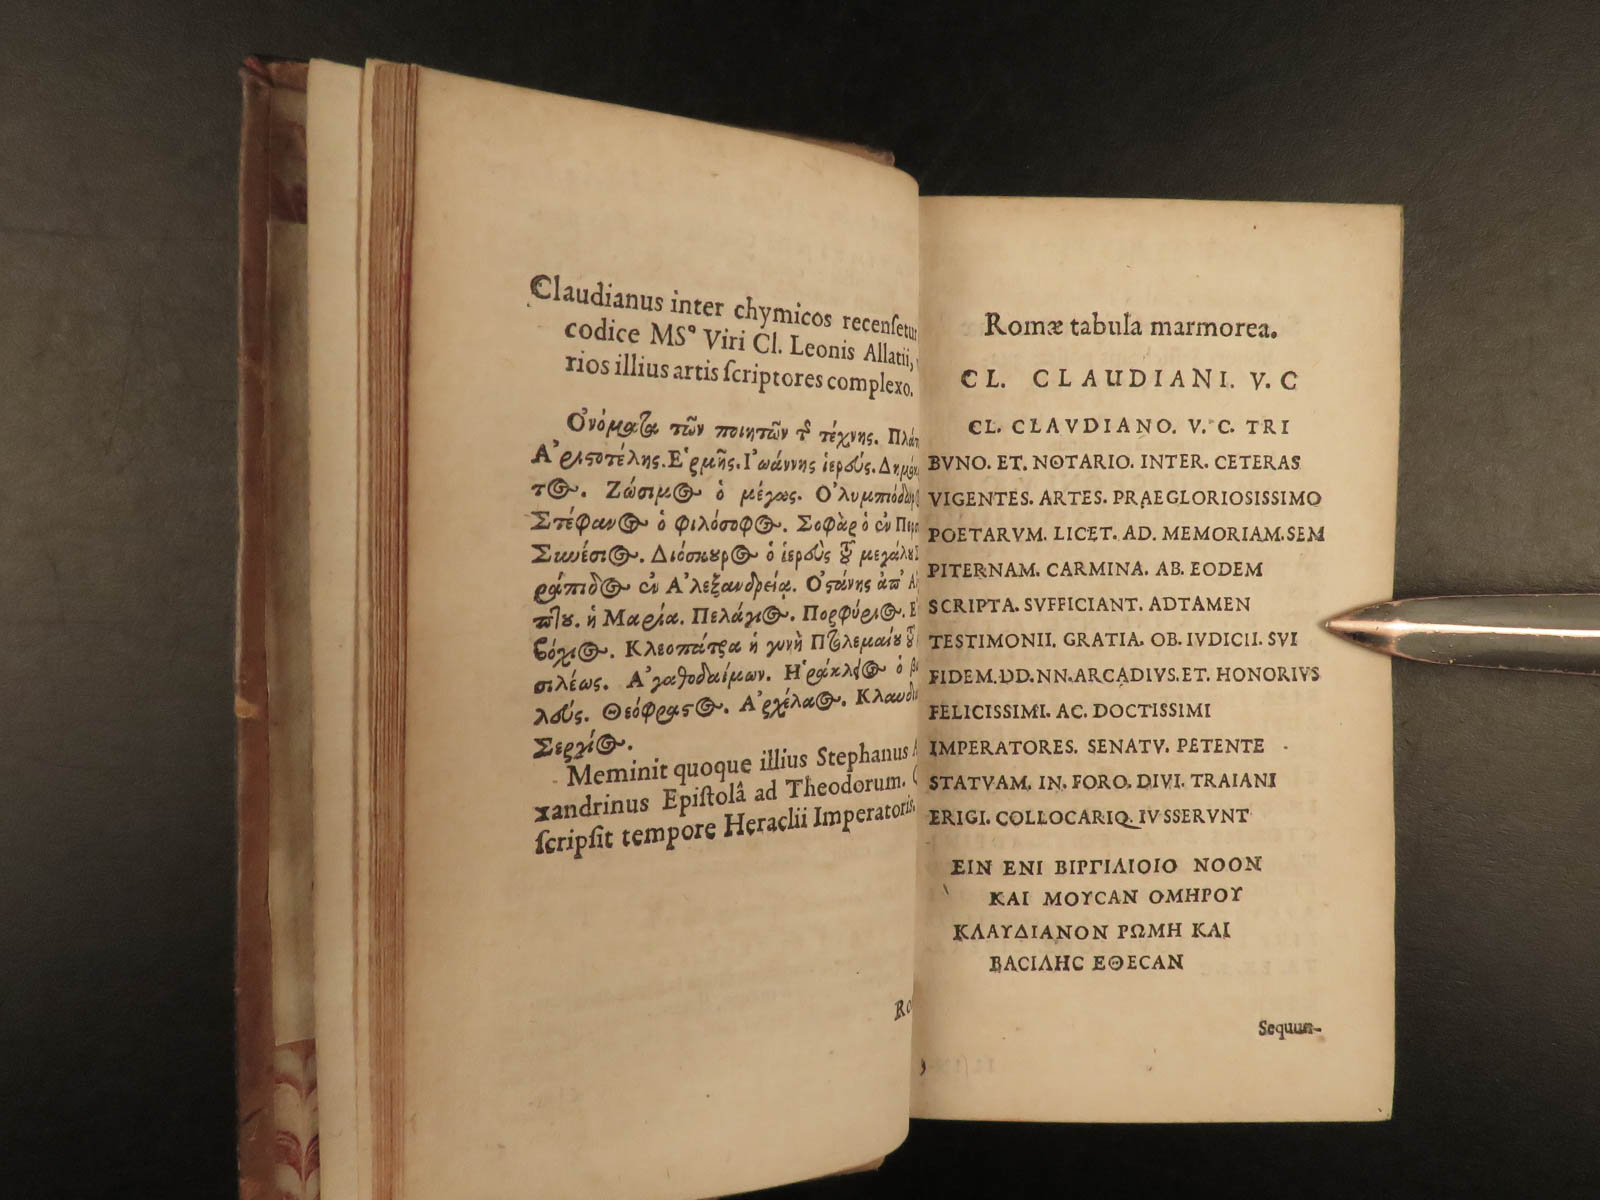 Claudianus inter chymicos recenſetur
codice MSº Viri Cl. Leonis Allatii,
rios illius artis ſcriptores complexo.
Ὀνόματα τῶν ποιητῶν τῆς τέχνης.
Ἀριστοτέλης. Ἑρμῆς. Ἰωάννης ἱερεύς.
τος. Ζώσιμος ὁ μέγας.
Στέφανος ὁ φιλόσοφος. Σοφὰρ ὁ ἐν
Συνέσιος. Διόσκυρος ὁ ἱερεὺς τοῦ μεγάλου
ράπιδος ἐν Ἀλεξανδρείᾳ. Ὀστάνης ἀπ'
ἡ Μαρία. Πελάγιος. Πορφύριος.
Κλεοπάτρα ἡ γυνὴ Πτολεμαίου τοῦ
σιλέως. Ἀγαθοδαίμων. Ἡράκλειος ὁ
Θεόφραστος. Ἀρχέλαος.
Σεργίος.
Meminit quoque illius Stephanus
xandrinus Epiſtolâ ad Theodorum.
ſcripſit tempore Heraclii Imperatoris.
Ro
Romæ tabula marmorea.
CL. CLAUDIANI. V. C
CL. CLAVDIANO. V. C. TRI
BVNO. ET. NOTARIO. INTER. CETERAS
VIGENTES. ARTES. PRAEGLORIOSISSIMO
POETARVM. LICET. AD. MEMORIAM. SEM
PITERNAM. CARMINA. AB. EODEM
SCRIPTA. SVFFICIANT. ADTAMEN
TESTIMONII. GRATIA. OB. IVDICII. SVI
FIDEM. DD. NN. ARCADIVS. ET. HONORIVS
FELICISSIMI. AC. DOCTISSIMI
IMPERATORES. SENATV. PETENTE
STATVAM. IN. FORO. DIVI. TRAIANI
ERIGI. COLLOCARIQ. IVSSERVNT
ΕΙΝ ΕΝΙ ΒΙΡΓΙΛΙΟΙΟ ΝΟΟΝ
ΚΑΙ ΜΟΥCΑΝ ΟΜΗΡΟΥ
ΚΛΑΥΔΙΑΝΟΝ ΡΩΜΗ ΚΑΙ
ΒΑCΙΛΗC ΕΘΕCΑΝ
Sequun-